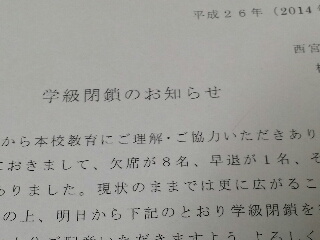 平成２６年（2014
西宮
学級閉鎖のお知らせ
から本校教育にご理解・ご協力いただきあり
ておきまして、欠席が８名、早退が１名、そ
ありました。現状のままでは更に広がるこ
の上、明日から下記のとおり学級閉鎖を
いただきますよう よろしく